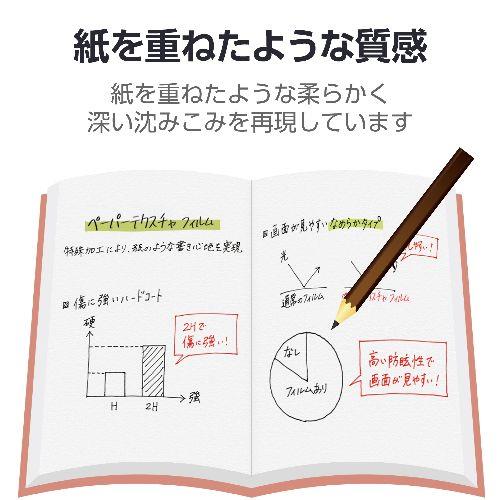 紙を重ねたような質感
紙を重ねたような柔らかく
深い沈みこみを再現しています
ペーパーテクスチャフィルム
特殊加工により、紙のような書き心地を実現
傷に強いハードコート
硬
2Hで
傷に強い!
H 2H
強
画面が見やすいなめらかタイプ
光
すい!
通常のフィルム
スチャフィルム
なし
フィルムあり
高い防眩性で
画面が見やすい!